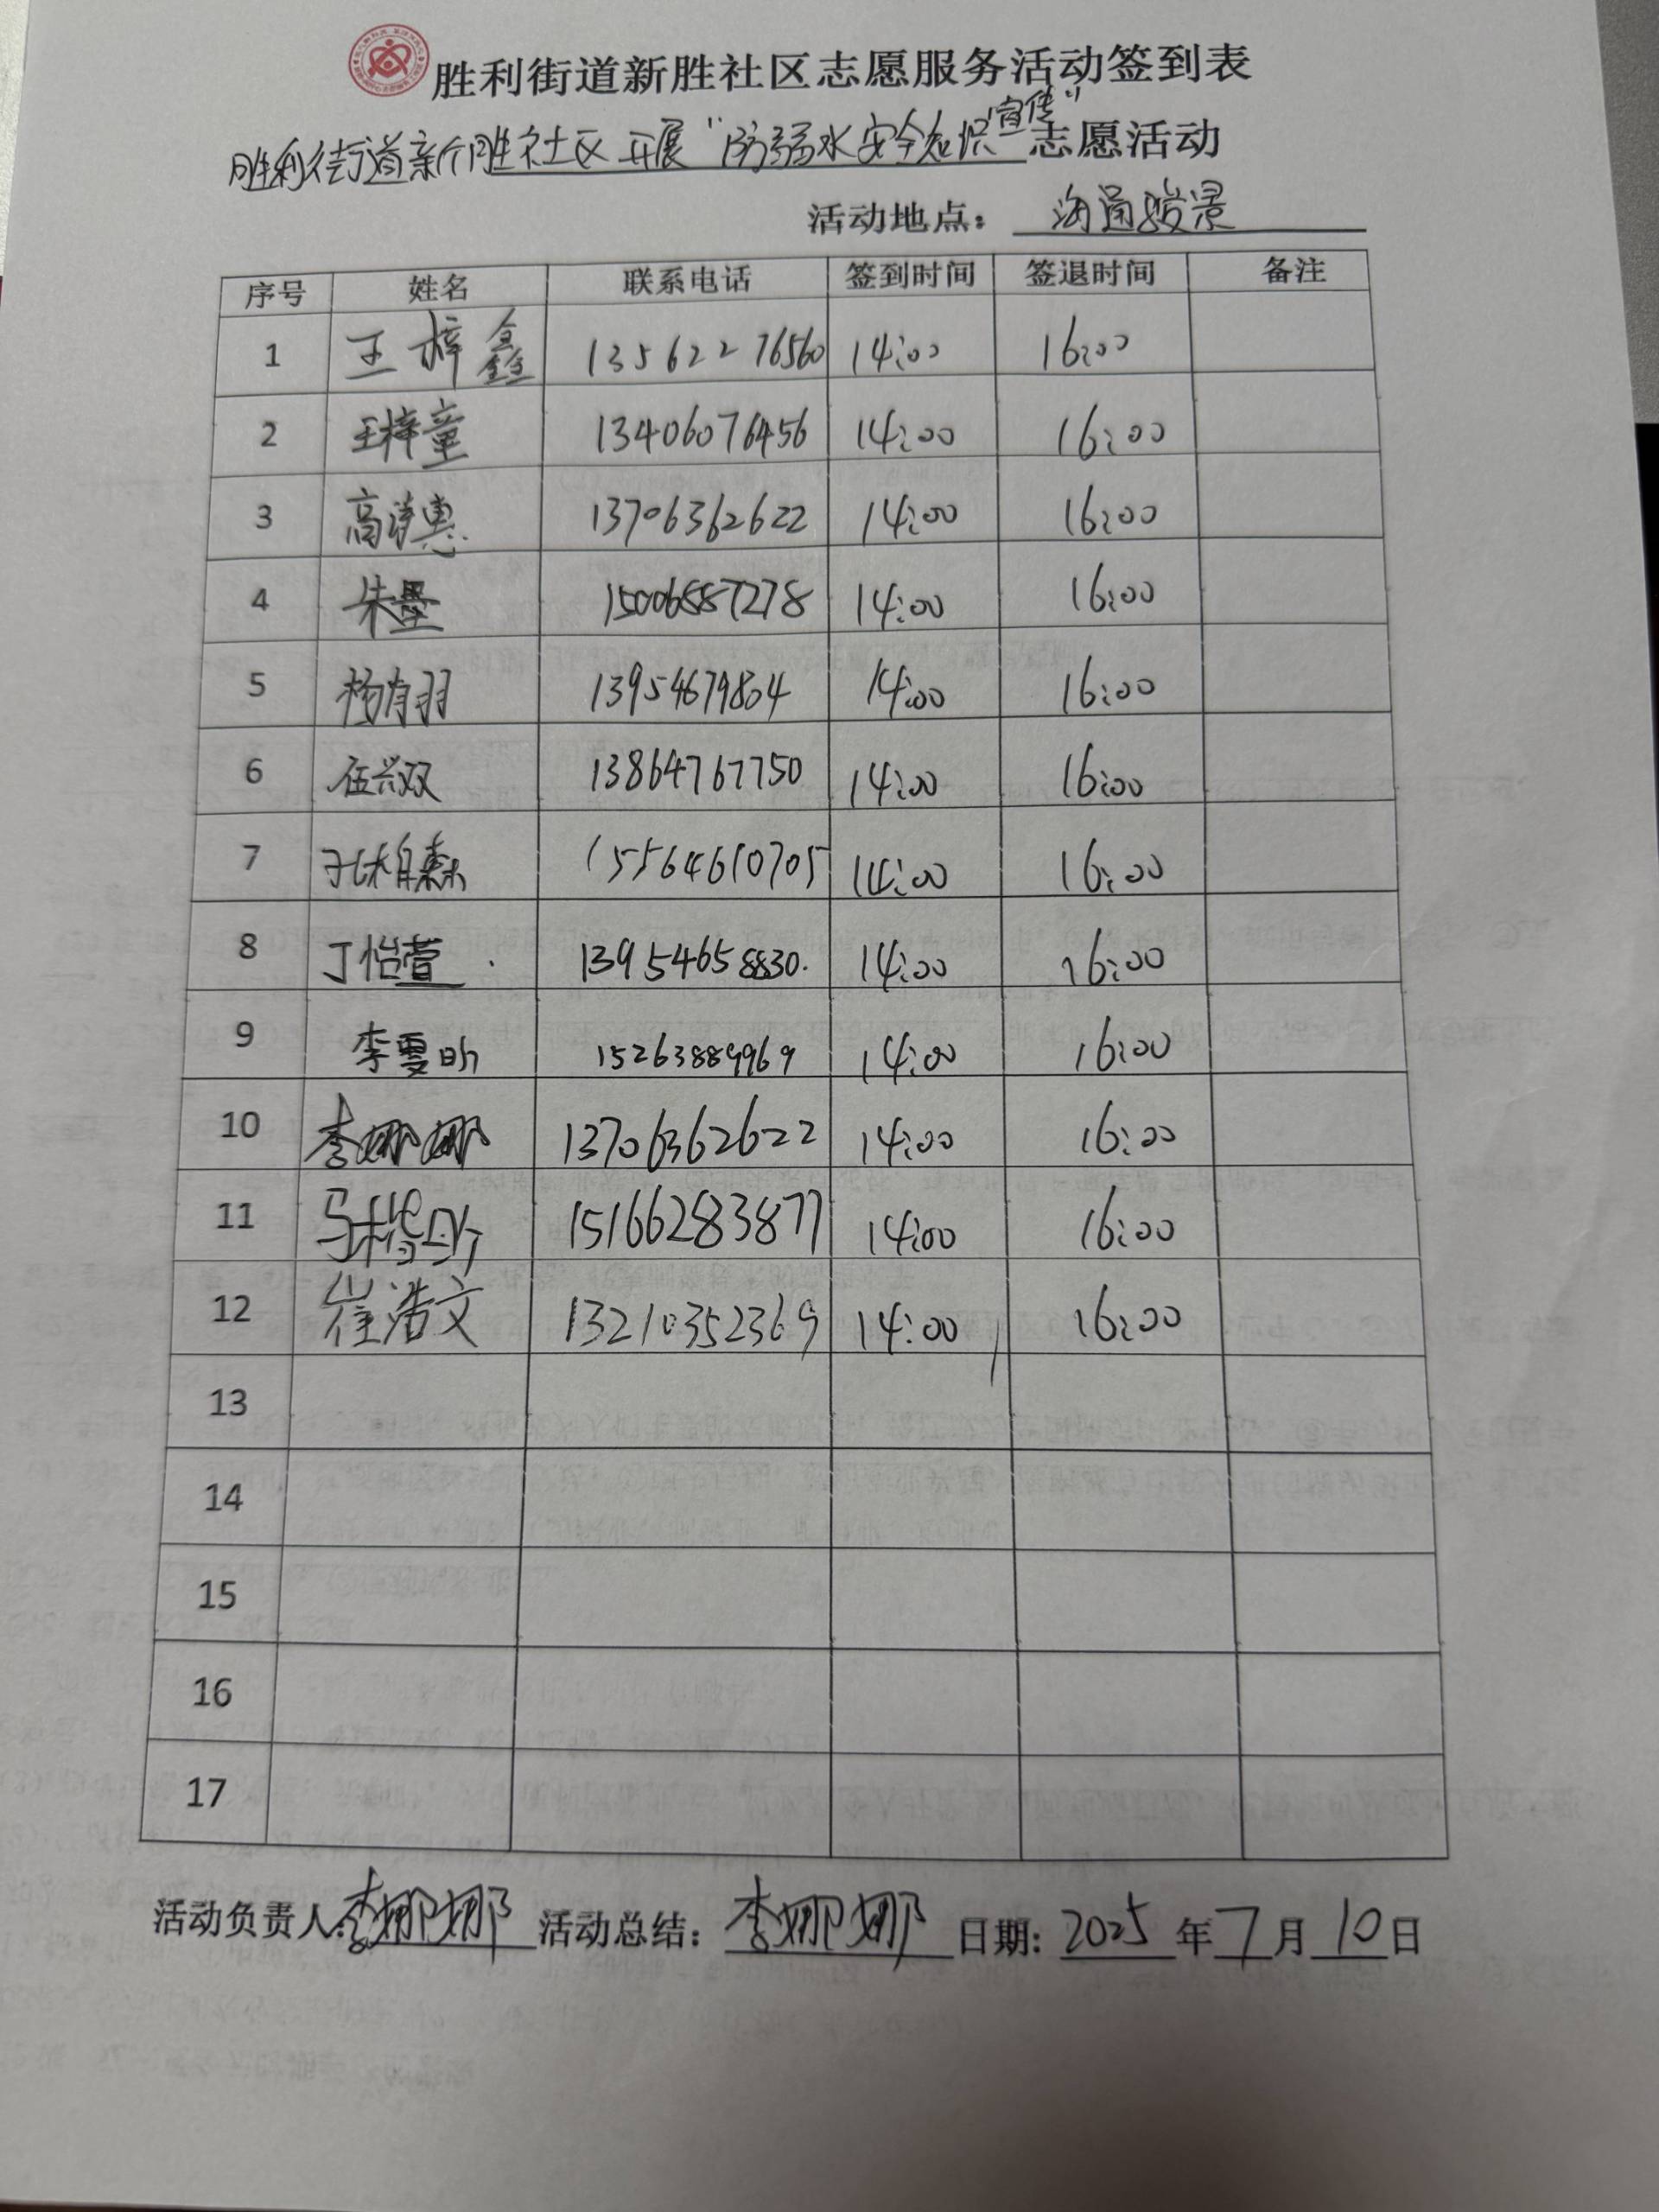 胜利街道新胜社区志愿服务活动签到表
胜利街道新胜社区开展“防溺水安全知识宣传”志愿活动
活动地点: 海通骏景
序号 姓名 联系电话 签到时间 签退时间 备注
1 王梓鑫 13562276560 14:00 16:00
2 王梓童 13406076456 14:00 16:00
3 高诗惠 13706362622 14:00 16:00
4 朱墨 15006887278 14:00 16:00
5 杨有羽 13954679804 14:00 16:00
6 伍兴双 13864767750 14:00 16:00
7 15564610705 14:00 16:00
8 丁怡萱 13954658830 14:00 16:00
9 李雯昕 15263889969 14:00 16:00
10 李娜娜 13706362622 14:00 16:00
11 15166283877 14:00 16:00
12 崔浩文 13210352369 14:00 16:00
13
14
15
16
17
活动负责人:李娜娜 活动总结: 李娜娜 日期: 2025年7月10日